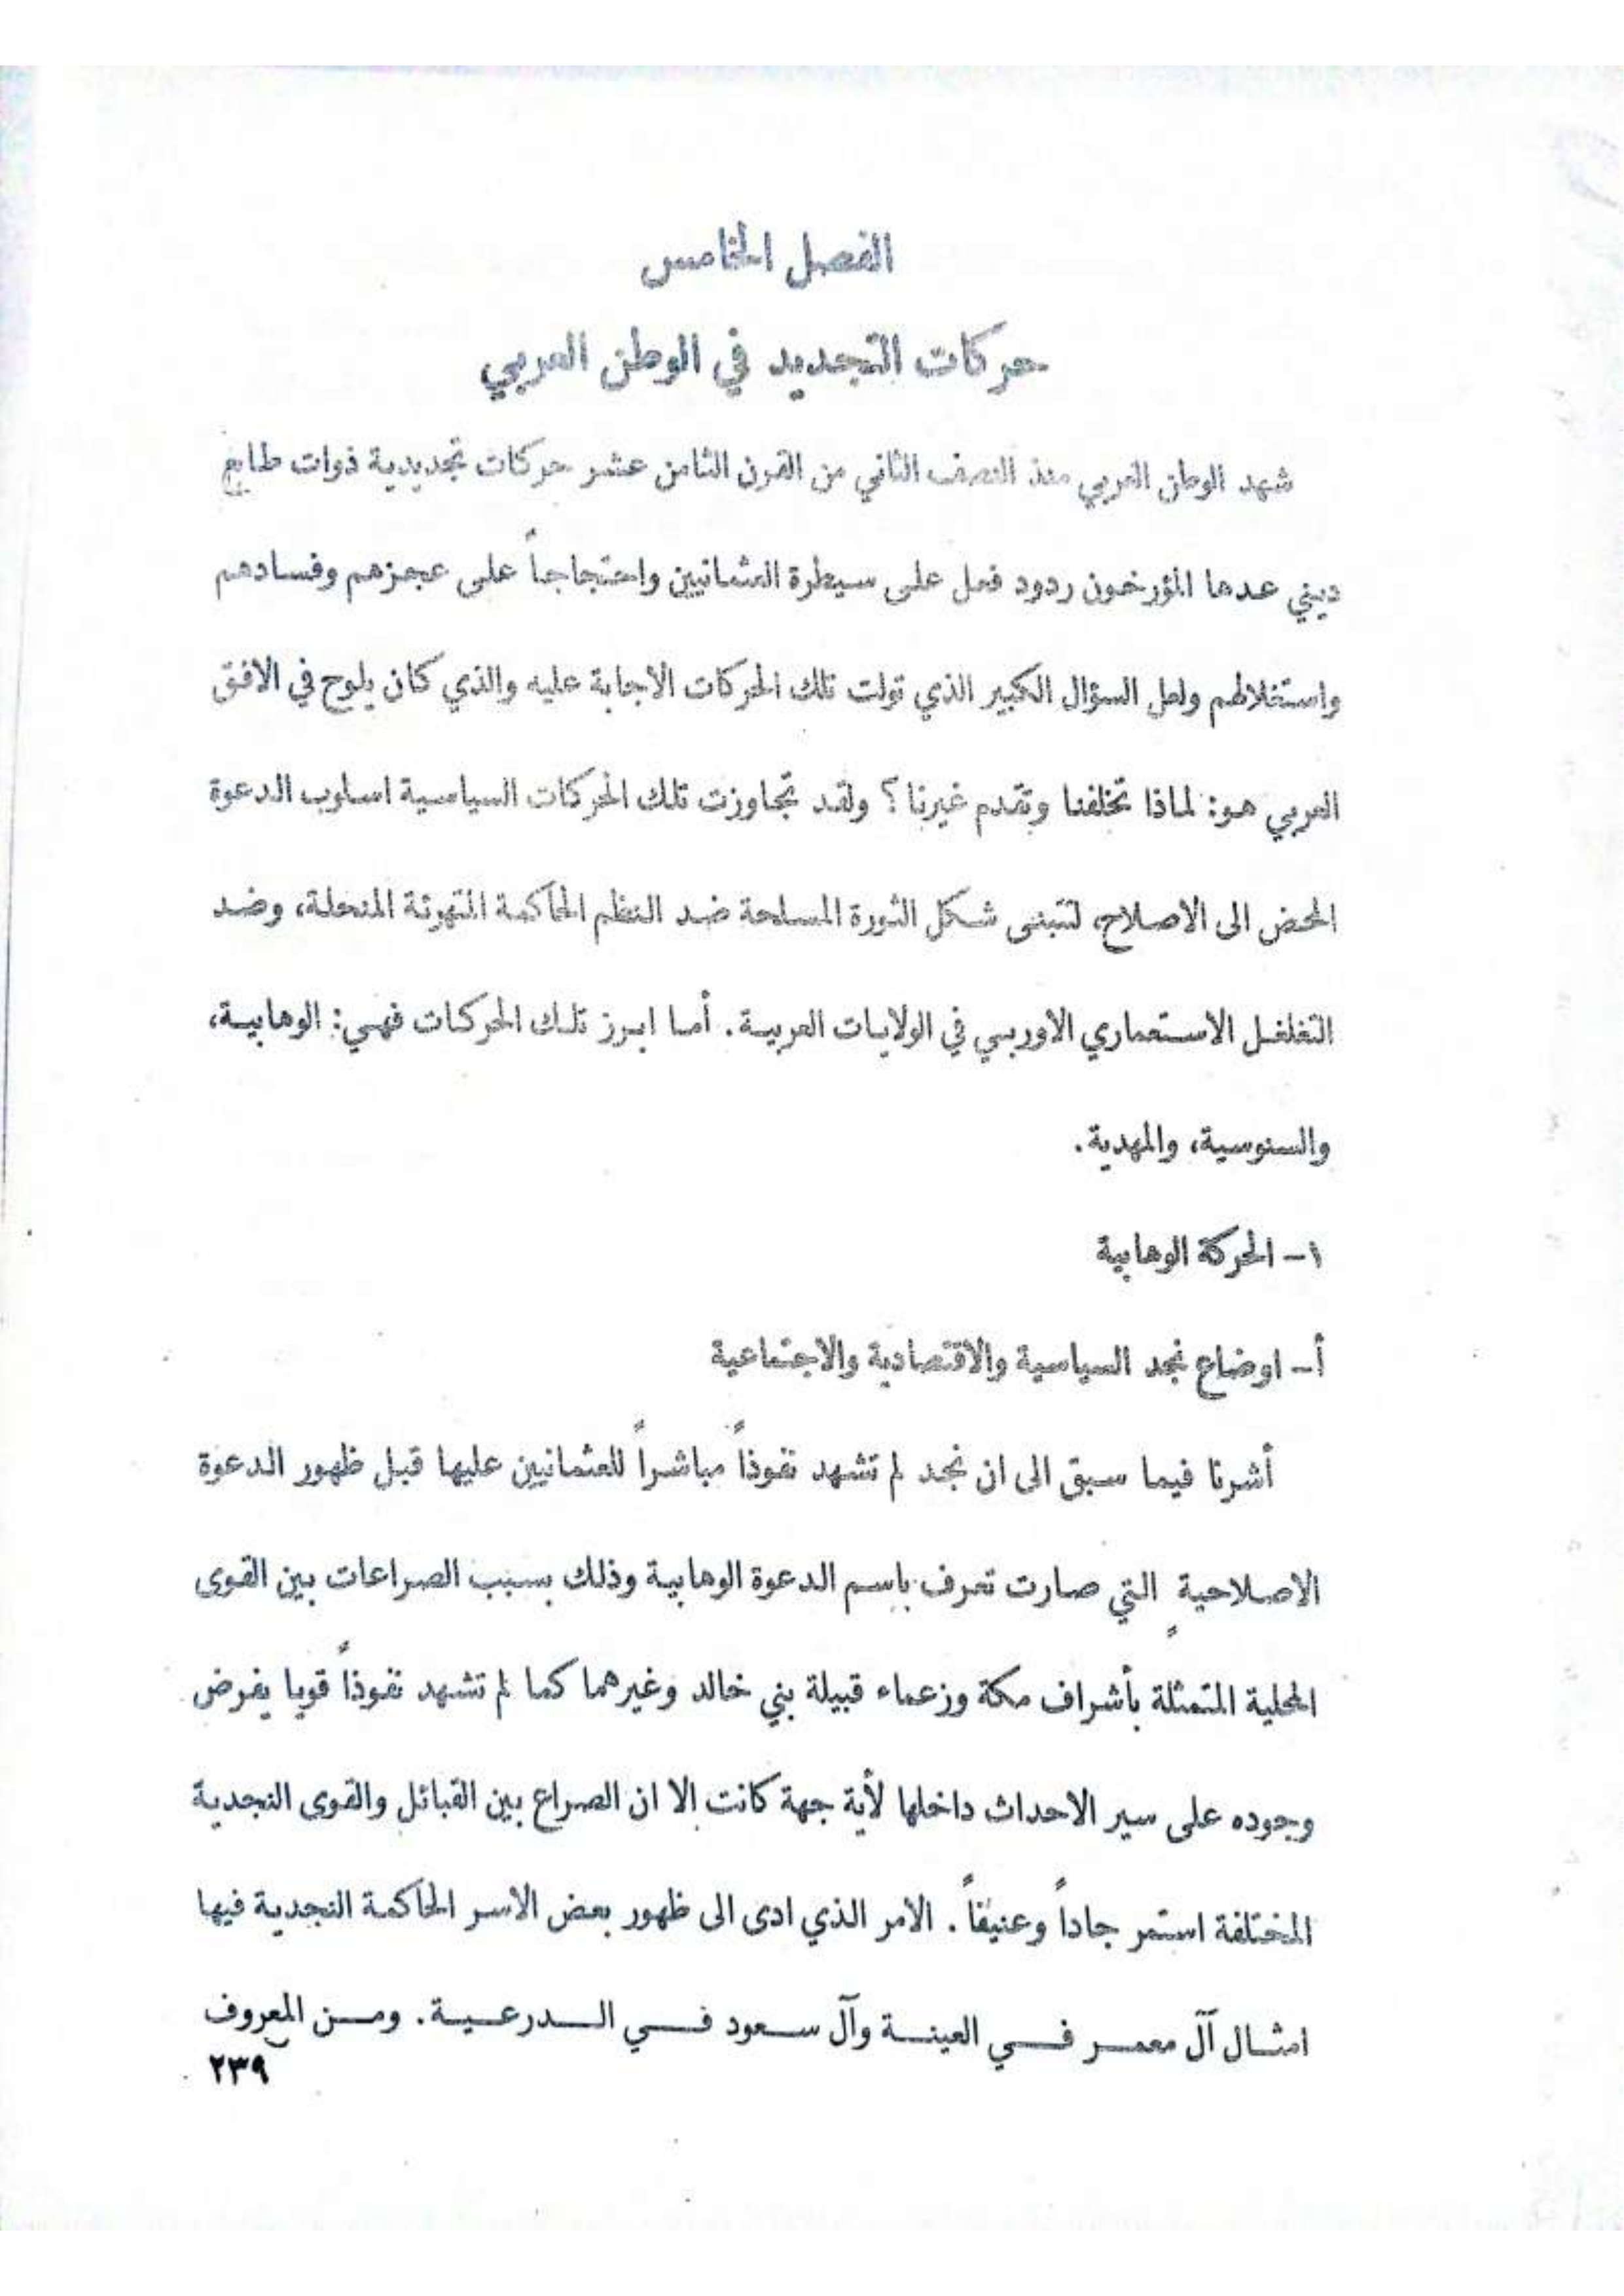 الفصل الخامس
حركات التجديد في الوطن العربي
شهد الوطن العربي منذ النصف الثاني من القرن الثامن عشر حركات تجديدية ذوات طابع
ديني عدها المؤرخون ردود فعل على سيطرة العثمانيين واحتجاجاً على عجزهم وفسادهم
واستغلالهم ولعل السؤال الكبير الذي تولت تلك الحركات الاجابة عليه والذي كان يلوح في الافق
العربي هو: لماذا تخلفنا وتقدم غيرنا؟ ولقد تجاوزت تلك الحركات السياسية اسلوب الدعوة
المحض الى الاصلاح، لتتبنى شكل الثورة المسلحة ضد النظم الحاكمة المتهرئة المنحلة، وضد
التغلغل الاستعماري الاوربي في الولايات العربية. أما ابرز تلك الحركات فهي: الوهابية،
والسنوسية، والمهدية.
١- الحركة الوهابية
أ- اوضاع نجد السياسية والاقتصادية والاجتماعية
أشرنا فيما سبق الى ان نجد لم تشهد نفوذاً مباشراً للعثمانيين عليها قبل ظهور الدعوة
الاصلاحية التي صارت تعرف باسم الدعوة الوهابية وذلك بسبب الصراعات بين القوى
المحلية المتمثلة بأشراف مكة وزعماء قبيلة بني خالد وغيرهما كما لم تشهد نفوذاً قويا يفرض
وجوده على سير الاحداث داخلها لأية جهة كانت الا ان الصراع بين القبائل والقوى النجدية
المختلفة استمر جاداً وعنيفاً. الامر الذي ادى الى ظهور بعض الاسر الحاكمة النجدية فيها
امثال آل معمر في العينة وآل سعود في الدرعية. ومن المعروف
٢٣٩